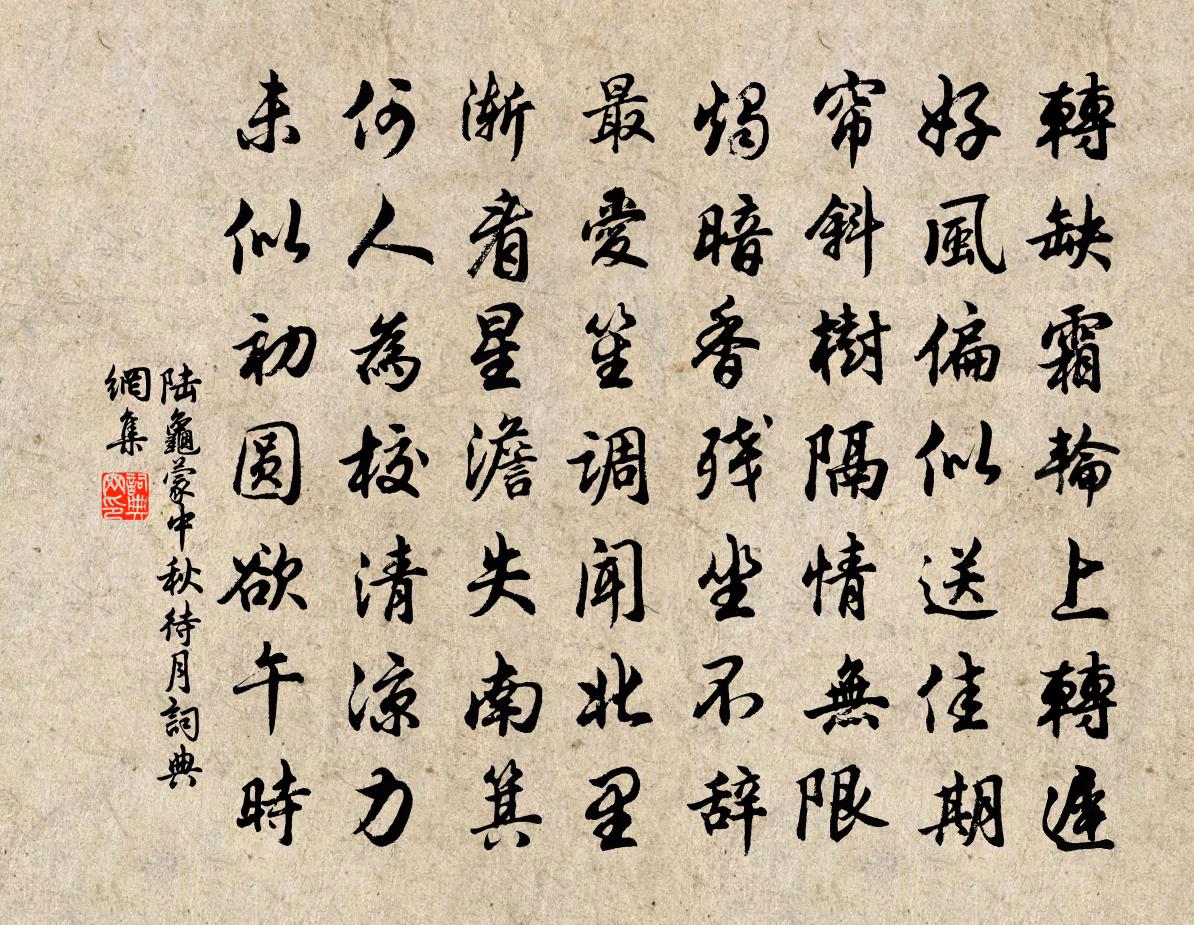 轉缺霜輪上轉遲
好風偏似送佳期
帘斜樹隔情無限
燭暗香殘坐不辞
最愛笙調聞北里
漸看星澹失南箕
何人為校清涼力
未似初圆欲午時
陆龜蒙中秋待月詞典
網集
詞典
网印